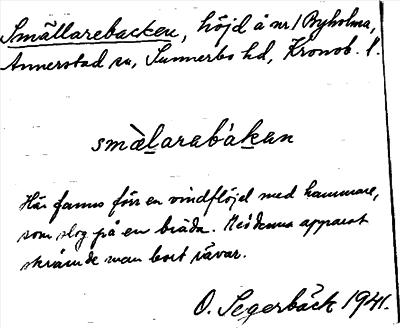 Smällarebacken, höjd å nr 1 Byholma,
Annerstad sn, Sunnerbo hd, Kronob. l.
smàlarebákan
Här fanns förr en vindflöjel med hammare,
som slog på en bräda. Med denna apparat
skrämde man bort rävar.
O. Segerbäck 1941.